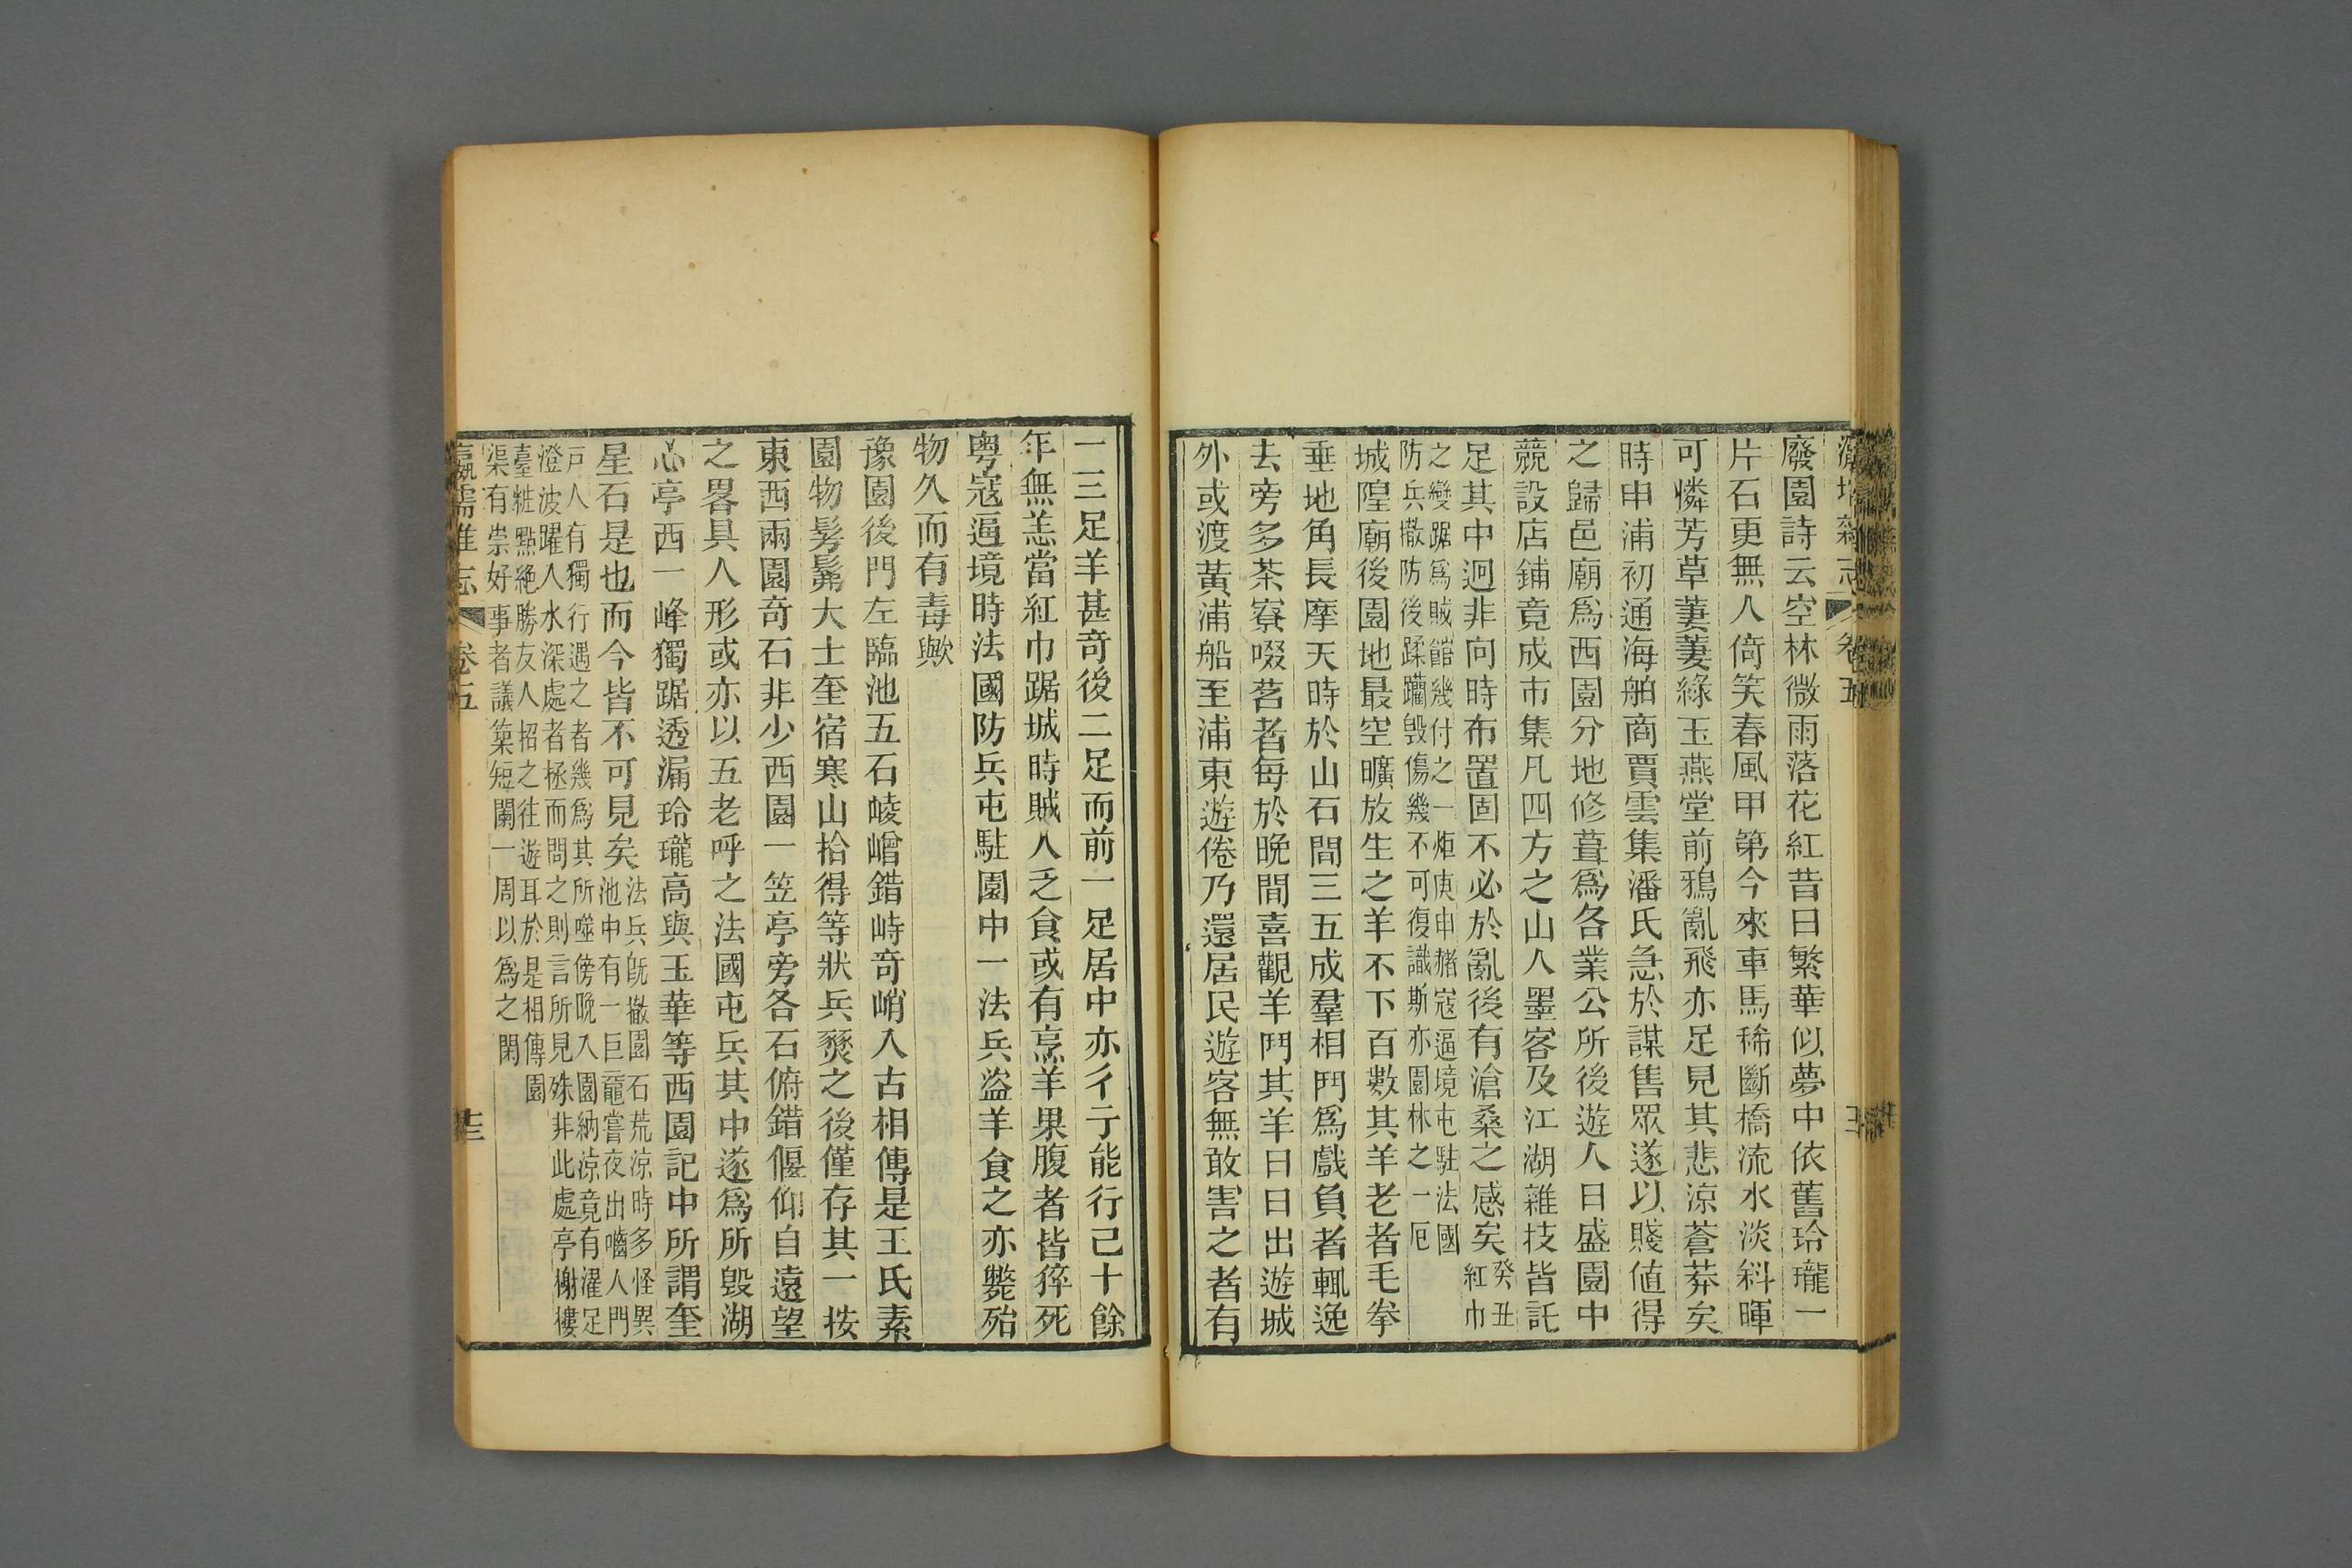 瀛壖雜志 卷五
廢園詩云空林微雨落花紅昔日繁華似夢中依舊玲瓏一
片石更無人倚笑春風甲第今來車馬稀斷橋流水淡斜暉
可憐芳草萋萋綠玉燕堂前鴉亂飛亦足見其悲涼蒼莽矣
時申浦初通海舶商賈雲集潘氏急於謀售眾遂以賤値得
之歸邑廟爲西園分地修葺爲各業公所後遊人日盛園中
競設店鋪竟成市集凡四方之山人墨客及江湖雜技皆託
足其中迥非向時布置固不必於亂後有滄桑之感矣癸丑紅巾
之變踞爲賊館幾付之一炬庚申豬寇逼境屯駐法國
防兵撤防後蹂躪毀傷幾不可復識斯亦園林之一厄
城隍廟後園地最空曠放生之羊不下百數其羊老者毛拳
垂地角長摩天時於山石間三五成羣相鬥爲戲負者輒逸
去旁多茶寮啜茗者每於晚間喜觀羊鬥其羊日日出遊城
外或渡黃浦船至浦東遊倦乃還居民遊客無敢害之者有
一三足羊甚奇後二足而前一足居中亦彳亍能行已十餘
年無恙當紅巾踞城時賊人乏食或有烹羊果腹者皆猝死
粵寇逼境時法國防兵屯駐園中一法兵盜羊食之亦斃殆
物久而有毒歟
豫園後門左臨池五石崚嶒錯峙奇峭入古相傳是王氏素
園物髣髴大士奎宿寒山拾得等狀兵燹之後僅存其一按
東西兩園奇石非少西園一笠亭旁各石俯錯偃仰自遠望
之畧具人形或亦以五老呼之法國屯兵其中遂爲所毀湖
心亭西一峰獨踞透漏玲瓏高與玉華等西園記中所謂奎
星石是也而今皆不可見矣法兵旣撤園石荒涼時多怪異
池中有一巨黿嘗夜出嚙人門
戸人有獨行遇之者幾爲其所噬傍晚入園納涼竟有濯足
澄波躍入水深處者拯而問之則言所見殊非此處亭榭樓
臺粧點絕勝友人招之往遊耳於是相傳園
渠有祟好事者議築短闌一周以爲之閑
瀛壖雜志 卷五